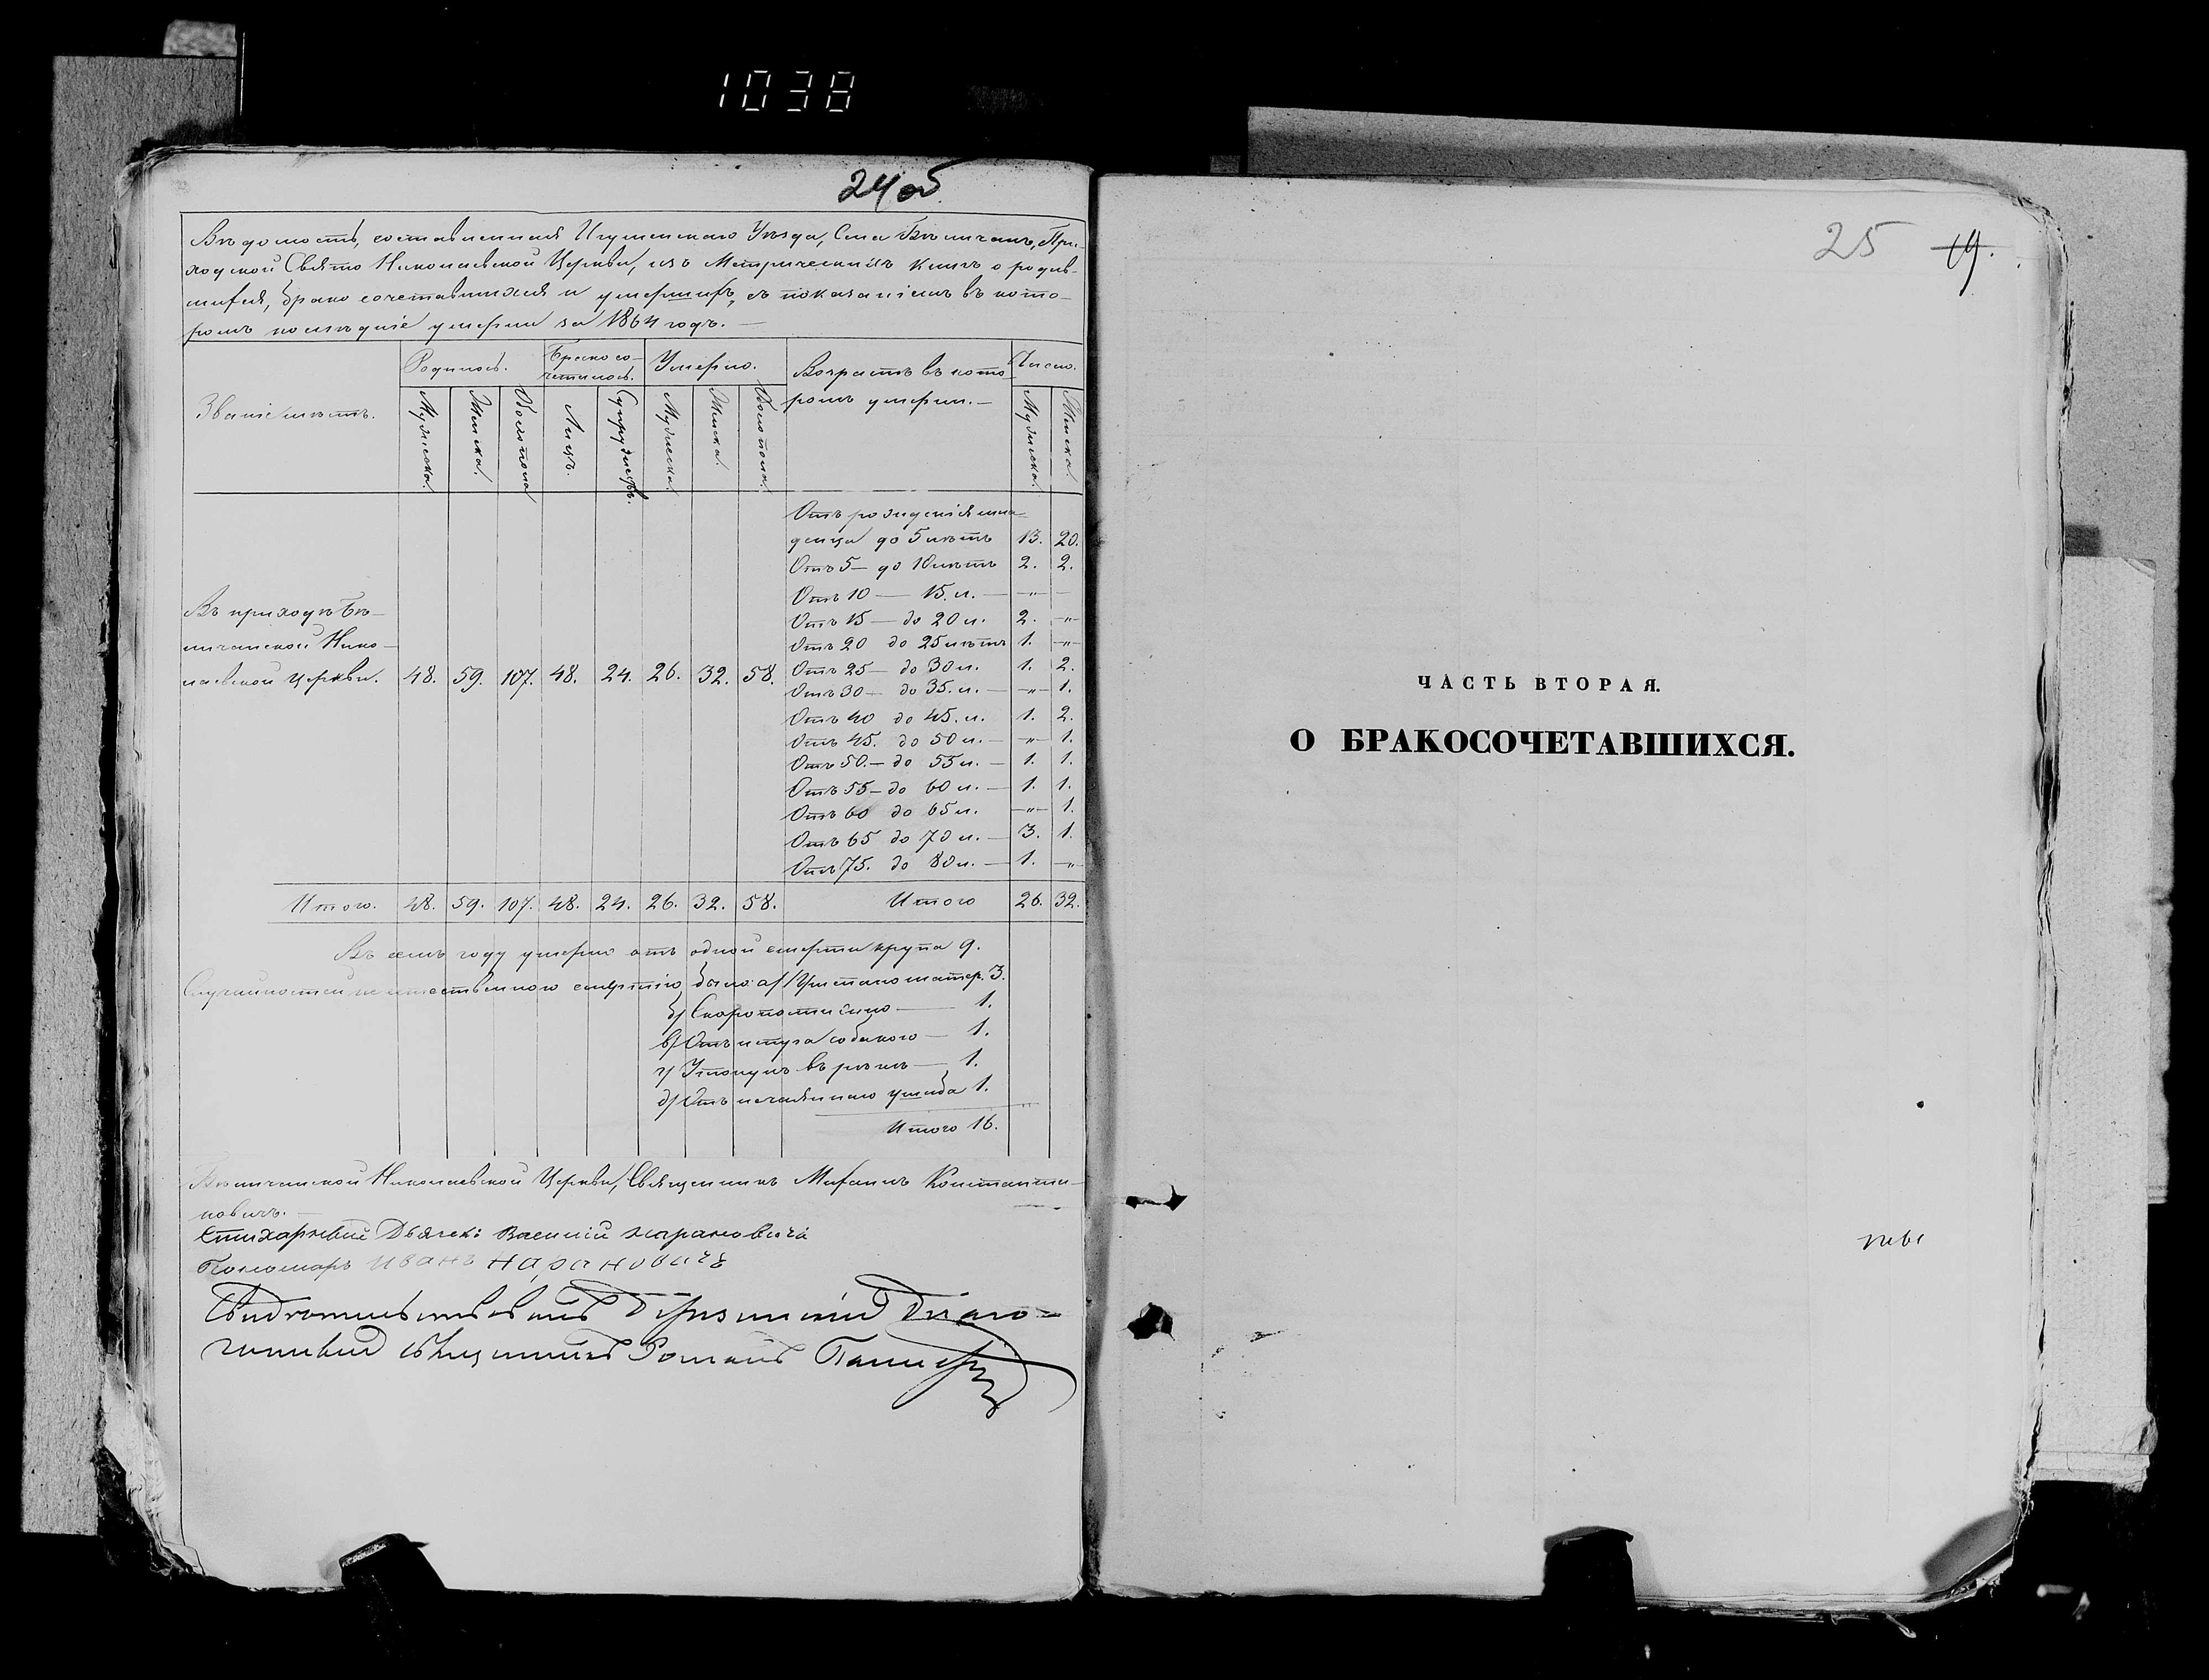 1038
24 об
Вѣдомость, составленная Игуменскаго Уѣзда, Села Бѣличанъ, При-
ходской Свято Николаевской Церкви, изъ Метрическихъ книгъ о родив-
шихся, брако сочетавшихся и умершихъ, съ показаніемъ въ кото-
ромъ послѣдніе умерли за 1864 годъ. —
Званіе мѣстъ.
Родилось.
Бракосо-
четалось.
Умерло.
Возрастъ въ кото-
ромъ умерли. —
Число.
Мужеска. Женска. Обоего пола Лицъ. Супружествъ. Мужеска. Женска. Обоего пола. Мужеска. Женска.
Отъ рожденія мла-
денца до 5 лѣтъ 13. 20.
Отъ 5 — до 10 лѣтъ 2. 2.
Отъ 10 — 15. л. — „ —
Отъ 15 — до 20 л. 2. „
Отъ 20 до 25 лѣтъ 1. „
Отъ 25 — до 30 л. 1. 2.
Отъ 30 — до 35. л. — „ 1.
Отъ 40 до 45. л. 1. 2.
Отъ 45. до 50 л. — „ 1.
Отъ 50. — до 55 л. — 1. 1.
Отъ 55 — до 60 л. — 1. 1.
Отъ 60 до 65 л. „ 1.
Отъ 65 до 70 л. — 3. 1.
Отъ 75. до 80 л. — 1. „
Въ приходѣ Бѣ-
личанской Нико-
лаевской Церкви. 48. 59. 107. 48. 24. 26. 32. 58.
Итого. 48. 59. 107. 48. 24. 26. 32. 58. Итого 26. 32.
Въ семъ году умерло отъ одной смерти крупа 9.
Случайностей неестественного смертію было: а)
матер. 3.
б) Скоропостижно — 1.
в) Отъ
1.
г) Утонулъ въ рѣкѣ — 1.
д) Отъ нечаяннаго ушиба 1.
Итого 16.
Бѣличанской Николаевской Церкви, Священникъ Михаилъ Константи-
новичъ. —
Стихарный Дьячекъ Василій
Пономарь Иванъ Нарановичъ
Свидѣтельствовалъ Березинскій Благо-
чинный Священникъ Романъ
25 19.
ЧАСТЬ ВТОРАЯ.
О БРАКОСОЧЕТАВШИХСЯ.